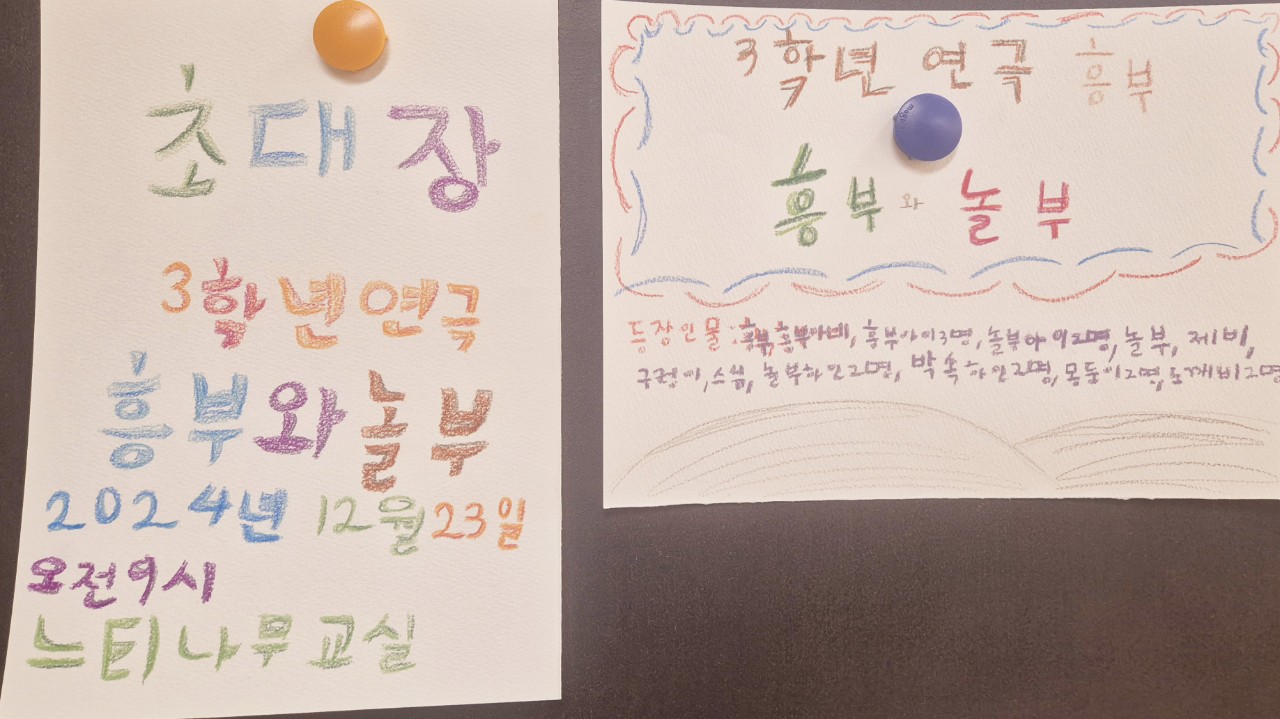 초대장
3학년연극
흥부와놀부
2024년 12월 23일
오전9시
느티나무교실
3학년 연극 흥부
흥부와 놀부
등장인물:흥부,흥부아내, 흥부아이3명, 놀부아이2명, 놀부, 제비,
구렁이,스님, 놀부하인2명, 박속하인2명, 몽둥이2명,도깨비2명